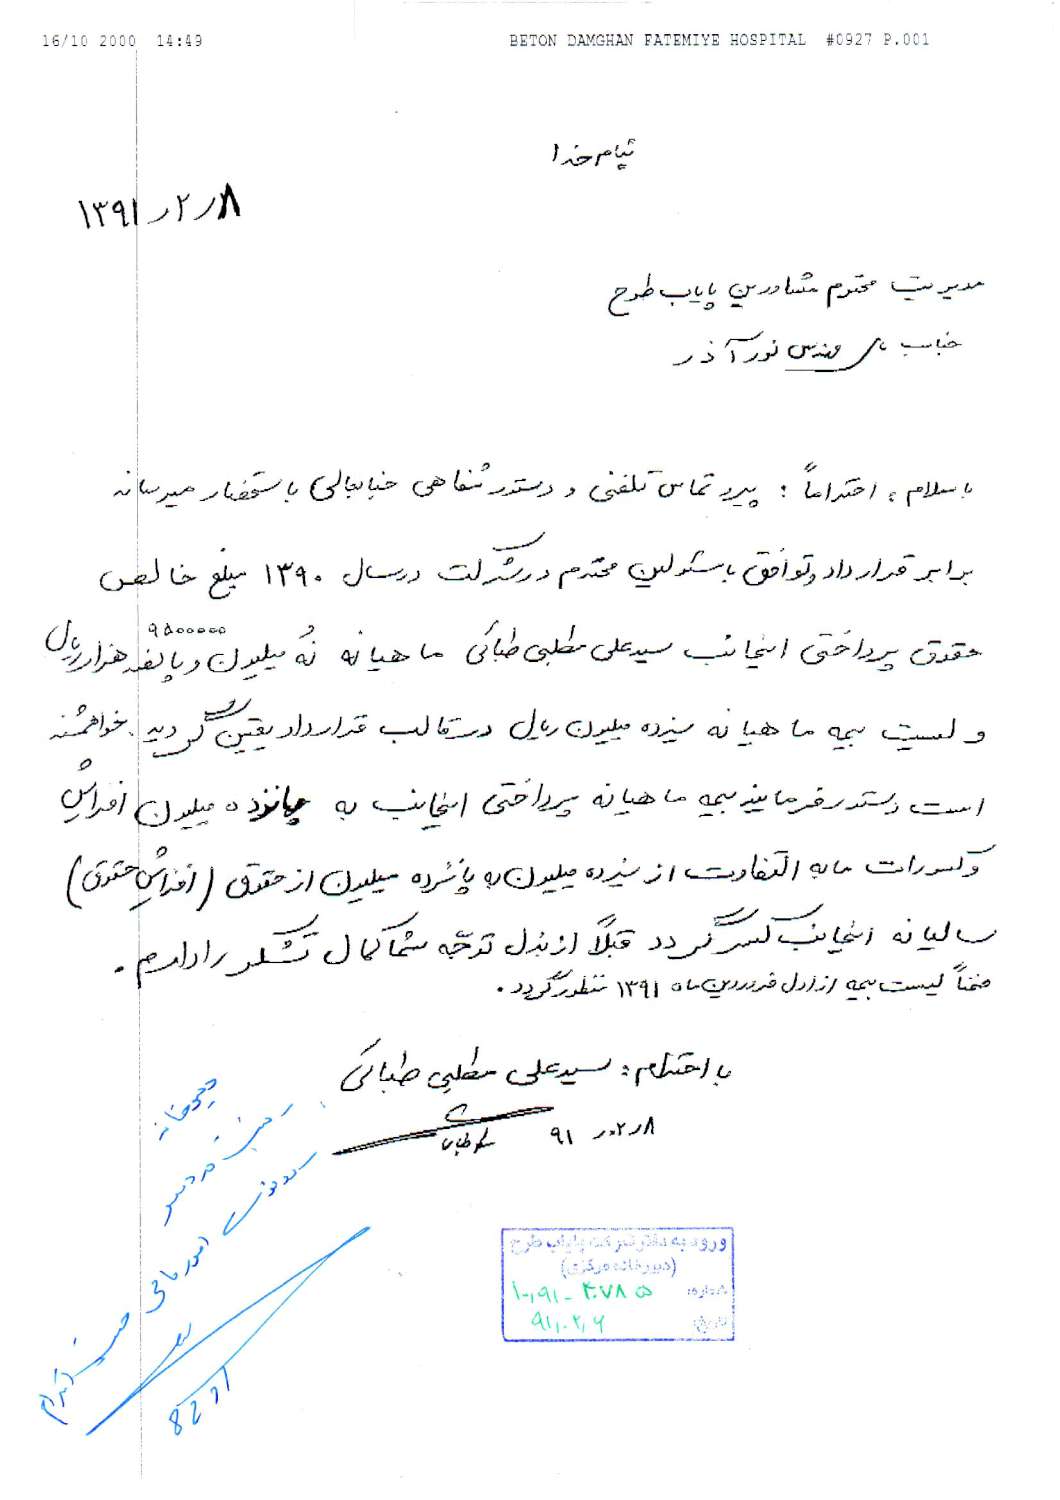 16/10 2000 14:49 BETON DAMGHAN FATEMIYE HOSPITAL #0927 P.001
بنام خدا
۱۳۹۱/۲/۸
مدیریت محترم مشاورین پایاب طرح
جناب مهندس نور آذر
با سلام، احتراماً: پیرو تماس تلفنی و دستور شفاهی جنابعالی باستحضار میرساند
برابر قرارداد و توافق با مسئولین محترم در شرکت در سال ۱۳۹۰ مبلغ خالص
حقوق پرداختی اینجانب سیدعلی مطلبی طباکی ماهیانه نُه میلیون و پانصد هزار ریال
۹۵۰۰۰۰۰
و لیست بیمه ماهیانه سیزده میلیون ریال در قالب قرارداد یقین گردید. خواهشمند
است دستور فرمایند بیمه ماهیانه پرداختی اینجانب به پانزده میلیون افزایش
و کسورات مابه التفاوت از سیزده میلیون به پانزده میلیون از حقوق (افزایش حقوق)
سالیانه اینجانب کسر گردد قبلاً از بذل توجّه شما کمال تشکر را دارم.
ضمناً لیست بیمه از اول فروردین ماه ۱۳۹۱ منظور گردد.
با احترام: سیدعلی مطلبی طباکی
۹۱/۲/۸
دبیرخانه
امور مالی
ورود به دفتر شرکت پایاب طرح
(دبیرخانه مرکزی)
شماره:
تاریخ: